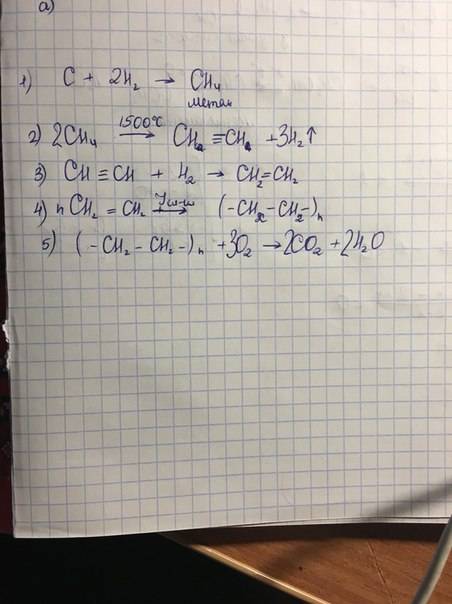 а)
1) C + 2H₂ → CH₄
метан
2) 2CH₄ 1500°C → CH ≡ CH + 3H₂↑
3) CH ≡ CH + H₂ → CH₂=CH₂
4) n CH₂ = CH₂ → (-CH₂-CH₂-)ₙ
5) (-CH₂-CH₂-)ₙ + 3O₂ → 2CO₂ + 2H₂O